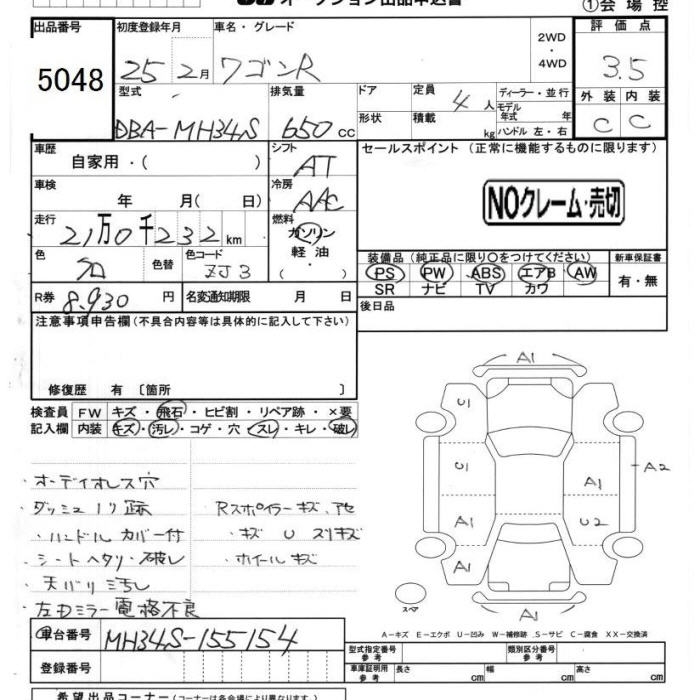 オークション出品申込書
①会場控
出品番号 初度登録年月 車名・グレード 2WD・4WD 評価点
5048 25 2月 ワゴンR 3.5
型式 排気量 ドア 定員 4人 ディーラー・並行 外装 内装
モデル年式 年
DBA-MH34S 650cc 形状 積載 kg ハンドル 左・右 C C
車歴 シフト セールスポイント (正常に機能するものに限ります)
自家用・( ) AT
車検 冷房
年 月( 日) AAC NOクレーム・売切
走行 燃料
21万0千232km ガソリン
軽油
装備品(純正品に限り○をつけてください) 新車保証書
色 色替 色コード ZJ3 ・
PS PW ABS エアB AW 有・無
SR ナビ TV カワ
R券 8,930円 名変通知期限 月 日 後日品
注意事項申告欄(不具合内容等は具体的に記入して下さい)
修復歴 有〔箇所 〕
検査員 FW キズ・飛石・ヒビ割・リペア跡・×要
記入欄 内装 キズ・汚レ・コゲ・穴・スレ・キレ・破レ
・オーディオレス穴
・ダッシュノリ跡
・ハンドルカバー付
・シートヘタリ・破レ
・天バリ汚レ
・左右ミラー電格不良
・Rスポイラーキズ、
・キズ U スリキズ
・ホイールキズ
A1
U1
U1
A1
A2
A1
U2
A1
A1
A1
スペア
A-キズ E-エクボ U-凹み W-補修跡 S-サビ C-腐食 XX-交換済
車台番号 MH34S-155154
登録番号
型式指定番号 参考 類別区分番号 参考
車庫証明用 参考 長さ cm 幅 cm 高さ cm
希望出品コーナー(コーナーは各会場により異なります)